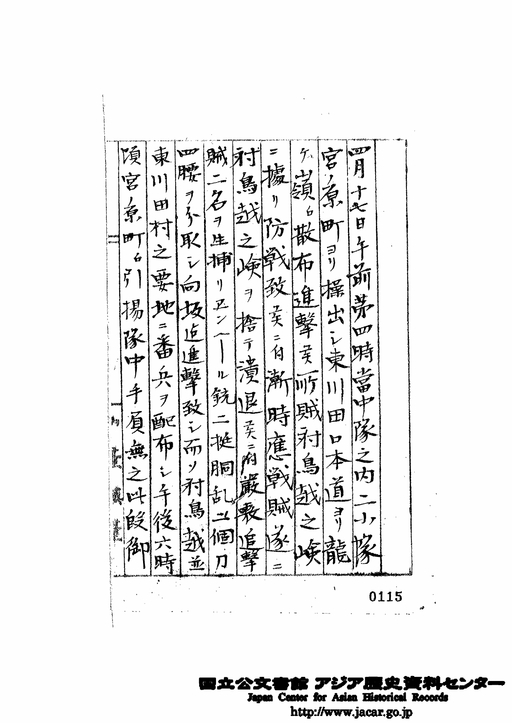 四月十七日午前第四時當中隊之内二小隊
宮ノ原町ヨリ操出シ東川田口本道ヨリ龍
ケ嶺ヘ散布進撃候所賊財鳥越之嶮
ニ據リ防戦致候ニ付漸時應戦賊遂ニ
財鳥越之嶮ヲ捨テ潰退候ニ付嚴敷追撃
賊二名ヲ生捕リエンヘール銃二挺胴乱二個刀
四腰ヲ分取シ向坂迄進撃致シ而ソ財鳥越並
東川田村之要地ニ番兵ヲ配布シ午後六時
頃宮ノ原町ヘ引揚隊中手負無之此段御
0115
国立公文書館 アジア歴史資料センター
Japan Center for Asian Historical Records
http://www.jacar.go.jp